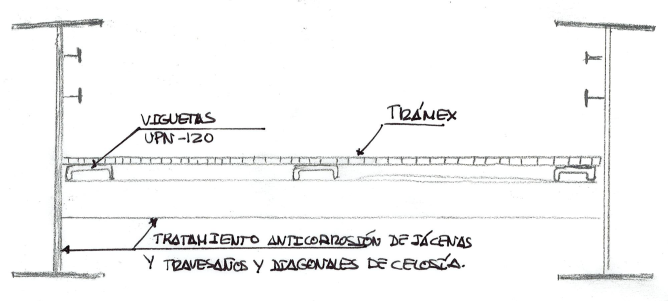 VIGUETAS
UPN-120
TRÁMEX
TRATAMIENTO ANTICORROSIÓN DE JÁCENAS
Y TRAVESAÑOS Y DIAGONALES DE CELOSÍA.